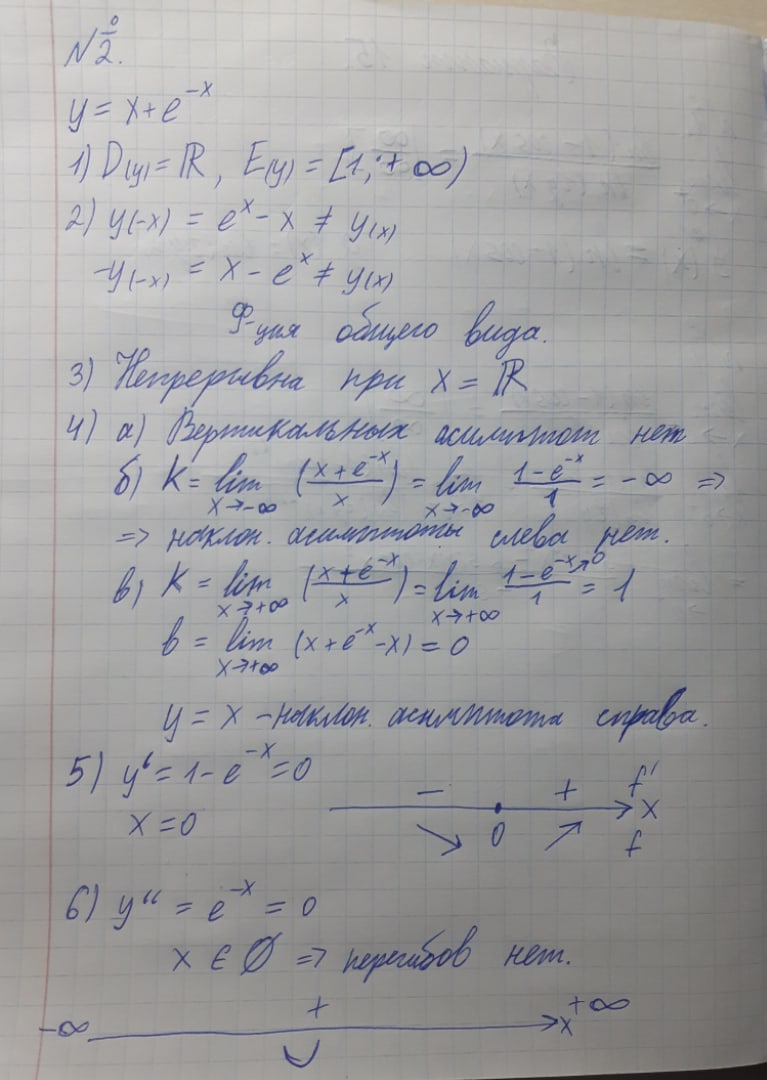 №2.
y = x + e^{-x}
1) D(y) = ℝ, E(y) = [1; +∞)
2) y(-x) = e^x - x ≠ y(x)
-y(-x) = x - e^x ≠ y(x)
Ф-ция общего вида.
3) Непрерывна при x = ℝ
4) а) Вертикальных асимптот нет
б) K = lim_{x→-∞} ((x+e^{-x})/x) = lim_{x→-∞} (1-e^{-x})/1 = -∞ =>
=> наклон. асимптоты слева нет.
в) K = lim_{x→+∞} ((x+e^{-x})/x) = lim_{x→+∞} (1-e^{-x}→0)/1 = 1
b = lim_{x→+∞} (x+e^{-x}-x) = 0
y = x - наклон. асимптота справа.
5) y' = 1 - e^{-x} = 0
x = 0
- + f'
0 x
↘ ↗ f
6) y'' = e^{-x} = 0
x ∈ ∅ => перегибов нет.
-∞ + +∞
x
∪